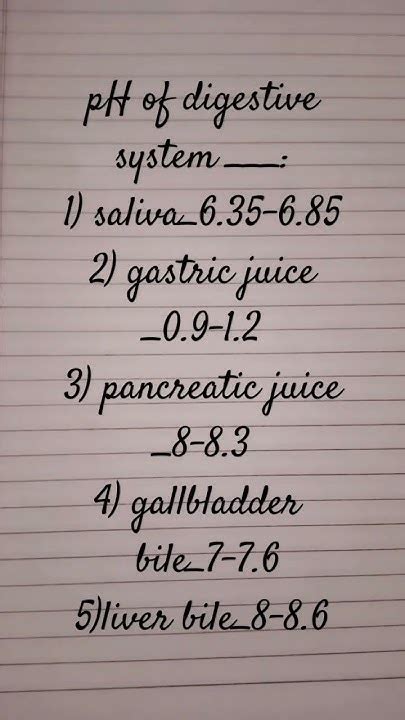 pH of digestive
system ___:
1) saliva_6.35-6.85
2) gastric juice
_0.9-1.2
3) pancreatic juice
_8-8.3
4) gallbladder
bile_7-7.6
5)liver bile_8-8.6